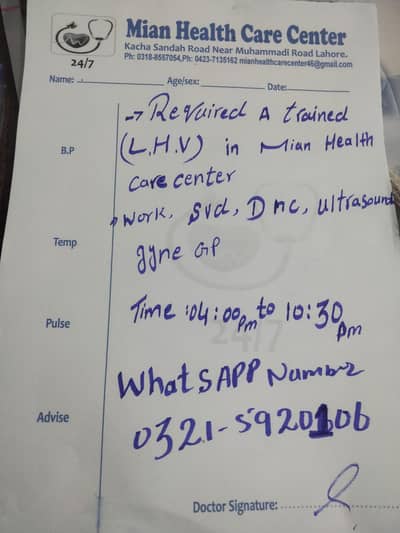 Mian Health Care Center
Kacha Sandah Road Near Muhammadi Road Lahore.
Ph: 0318-8557054,Ph: 0423-7135162 mianhealthcarecenter46@gmail.com
24/7
Name: Age/sex: Date:
→ Required A trained
B.P (L.H.V) in Mian Health
Care center
Work, Svd, Dnc, ultrasound
Temp gyne GP
Pulse Time :04:00pm to 10:30pm
24/7
WhatSAPP Number
Advise 0321-5920106
Doctor Signature: